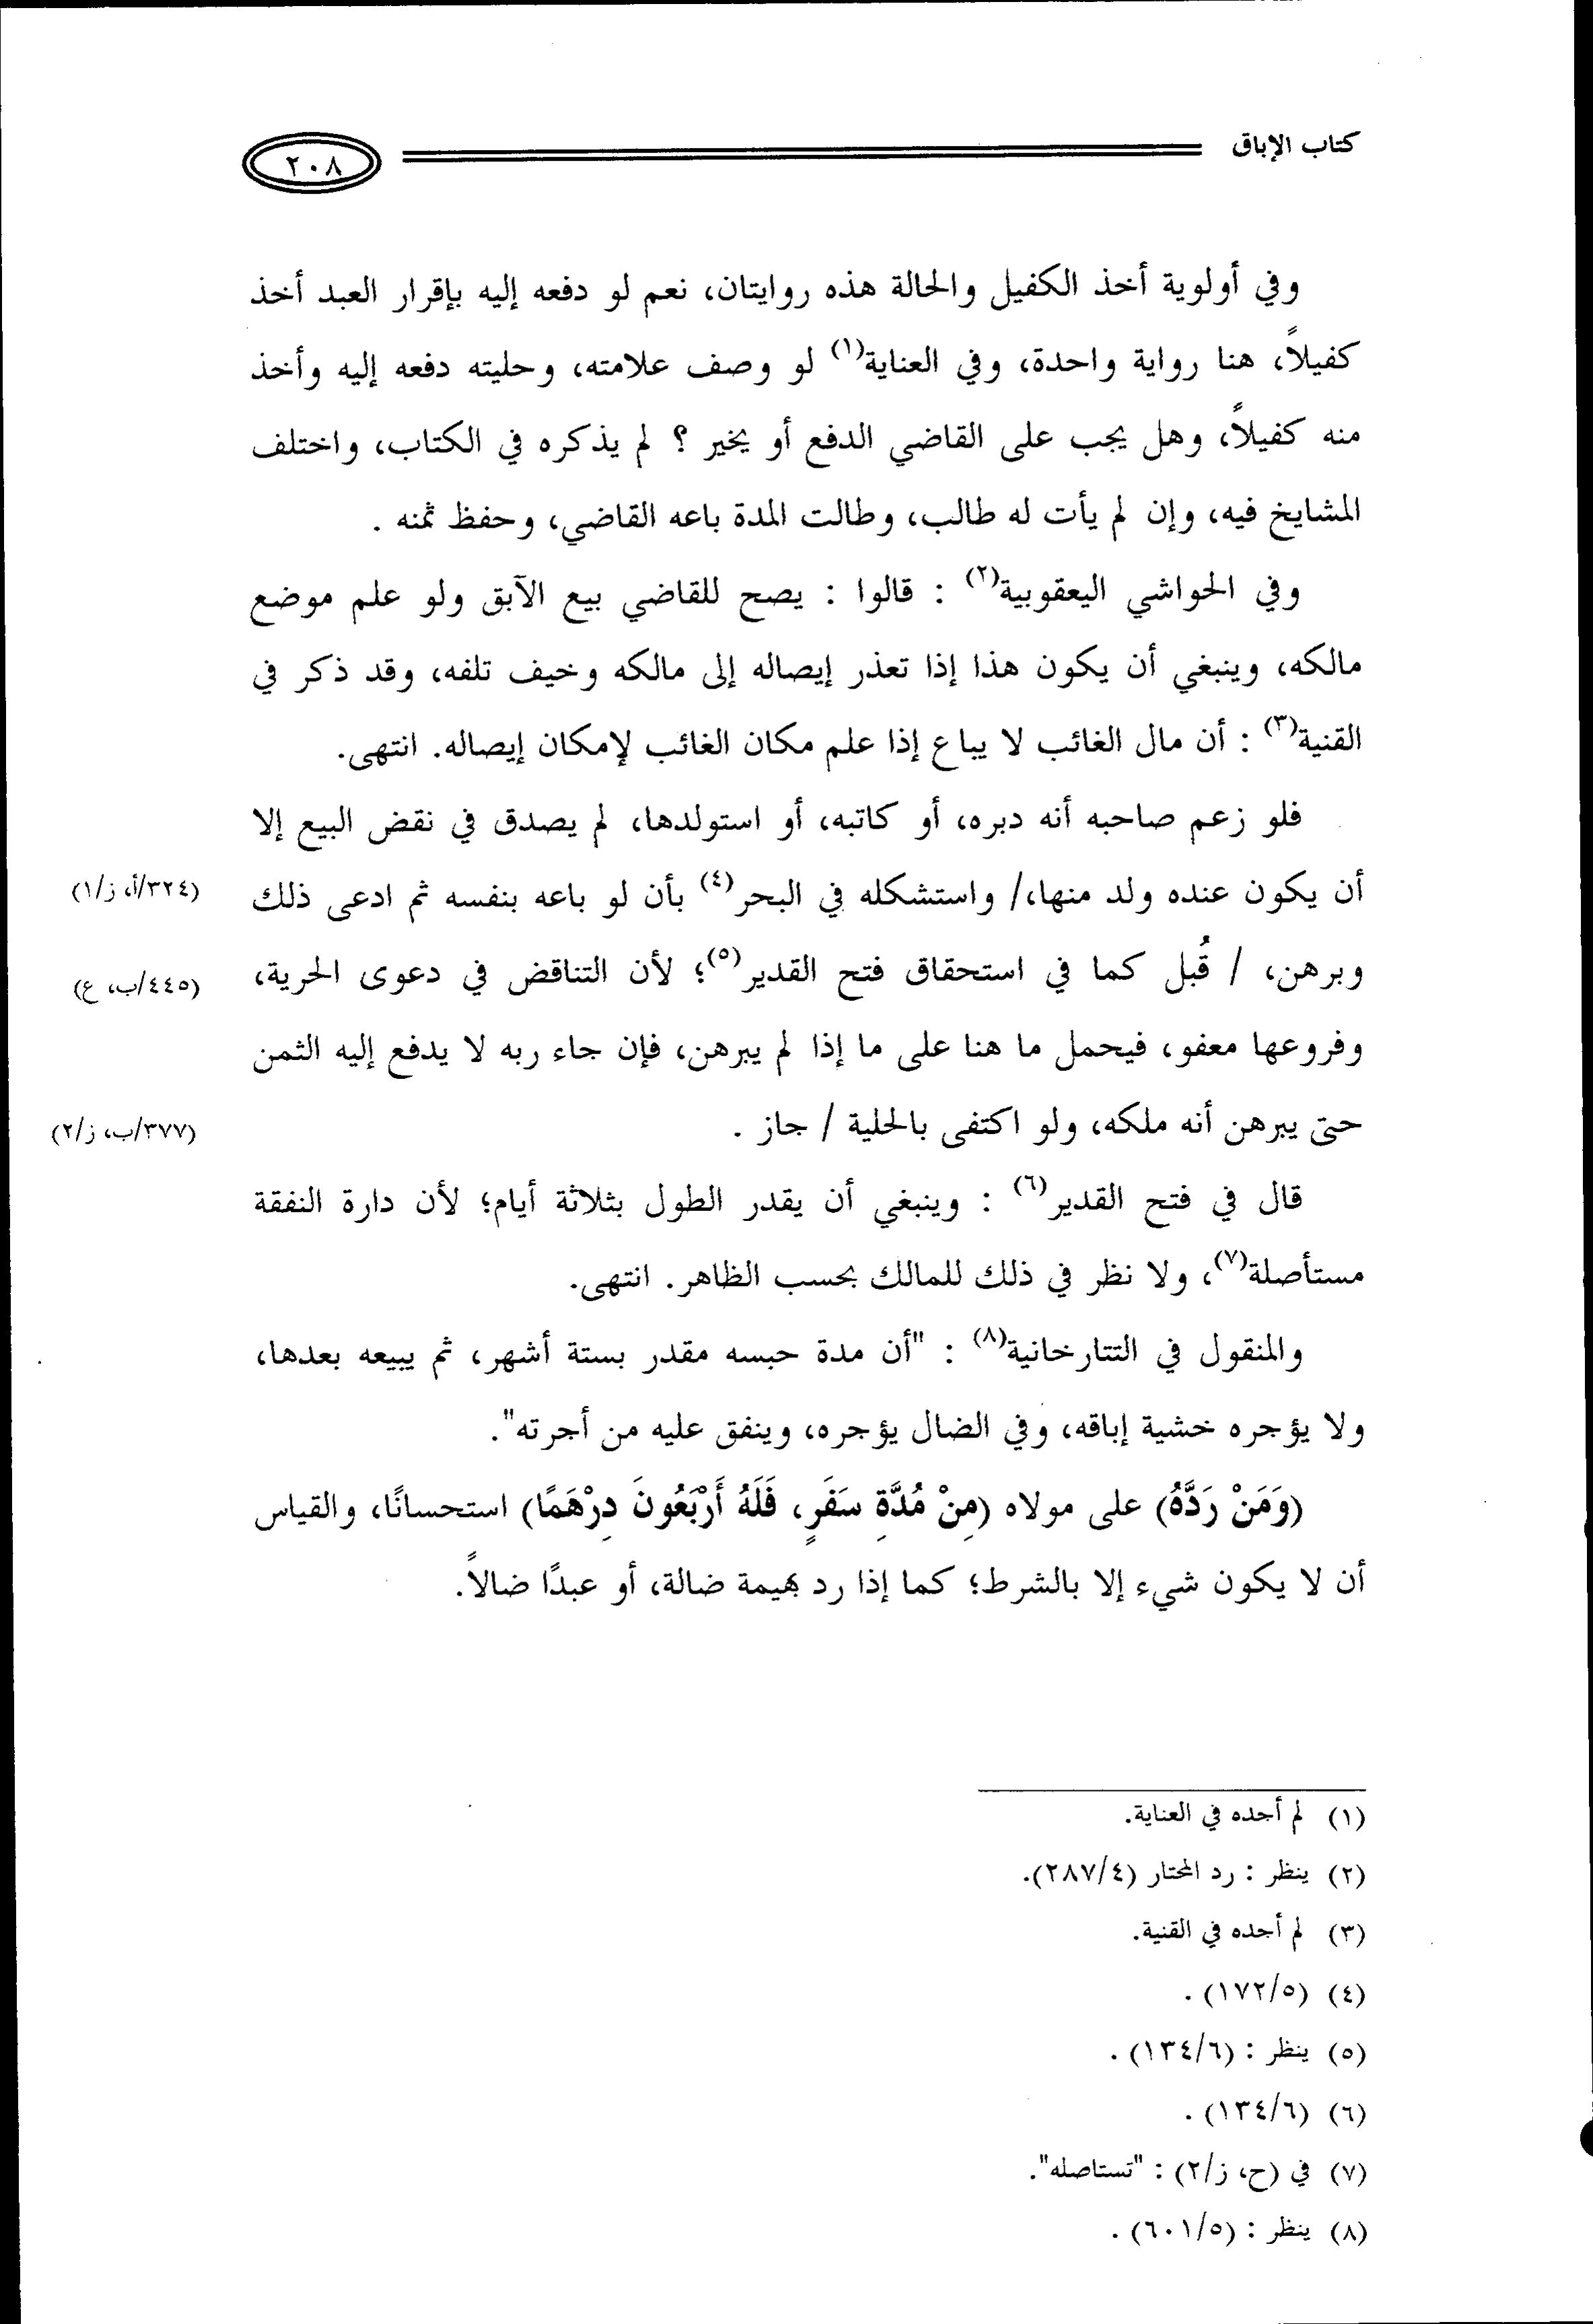 كتاب الإباق
٢٠٨
وفي أولوية أخذ الكفيل والحالة هذه روايتان، نعم لو دفعه إليه بإقرار العبد أخذ
كفيلاً، هنا رواية واحدة، وفي العناية(١) لو وصف علامته، وحليته دفعه إليه وأخذ
منه كفيلاً، وهل يجب على القاضي الدفع أو يخير ؟ لم يذكره في الكتاب، واختلف
المشايخ فيه، وإن لم يأت له طالب، وطالت المدة باعه القاضي، وحفظ ثمنه .
وفي الحواشي اليعقوبية(٢) : قالوا : يصح للقاضي بيع الآبق ولو علم موضع
مالكه، وينبغي أن يكون هذا إذا تعذر إيصاله إلى مالكه وخيف تلفه، وقد ذكر في
القنية(٣) : أن مال الغائب لا يباع إذا علم مكان الغائب لإمكان إيصاله. انتهى.
فلو زعم صاحبه أنه دبره، أو كاتبه، أو استولدها، لم يصدق في نقض البيع إلا
أن يكون عنده ولد منها،/ واستشكله في البحر(٤) بأن لو باعه بنفسه ثم ادعى ذلك
(٣٢٤/أ، ز/١)
وبرهن، / قُبل كما في استحقاق فتح القدير(٥)؛ لأن التناقض في دعوى الحرية،
(٤٤٥/ب، ع)
وفروعها معفو، فيحمل ما هنا على ما إذا لم يبرهن، فإن جاء ربه لا يدفع إليه الثمن
حتى يبرهن أنه ملكه، ولو اكتفى بالحلية / جاز .
(٣٧٧/ب، ز/٢)
قال في فتح القدير(٦) : وينبغي أن يقدر الطول بثلاثة أيام؛ لأن دارة النفقة
مستأصلة(٧)، ولا نظر في ذلك للمالك بحسب الظاهر. انتهى.
والمنقول في التتارخانية(٨) : "أن مدة حبسه مقدر بستة أشهر، ثم يبيعه بعدها،
ولا يؤجره خشية إباقه، وفي الضال يؤجره، وينفق عليه من أجرته".
(وَمَنْ رَدَّهُ) على مولاه (مِنْ مُدَّةِ سَفَرٍ، فَلَهُ أَرْبَعُونَ دِرْهَمًا) استحسانًا، والقياس
أن لا يكون شيء إلا بالشرط؛ كما إذا رد بهيمة ضالة، أو عبدًا ضالاً.
(١) لم أجده في العناية.
(٢) ينظر : رد المحتار (٢٨٧/٤).
(٣) لم أجده في القنية.
(٤) (١٧٢/٥) .
(٥) ينظر : (١٣٤/٦) .
(٦) (١٣٤/٦) .
(٧) في (ح، ز/٢) : "تستاصله".
(٨) ينظر : (٦٠١/٥) .